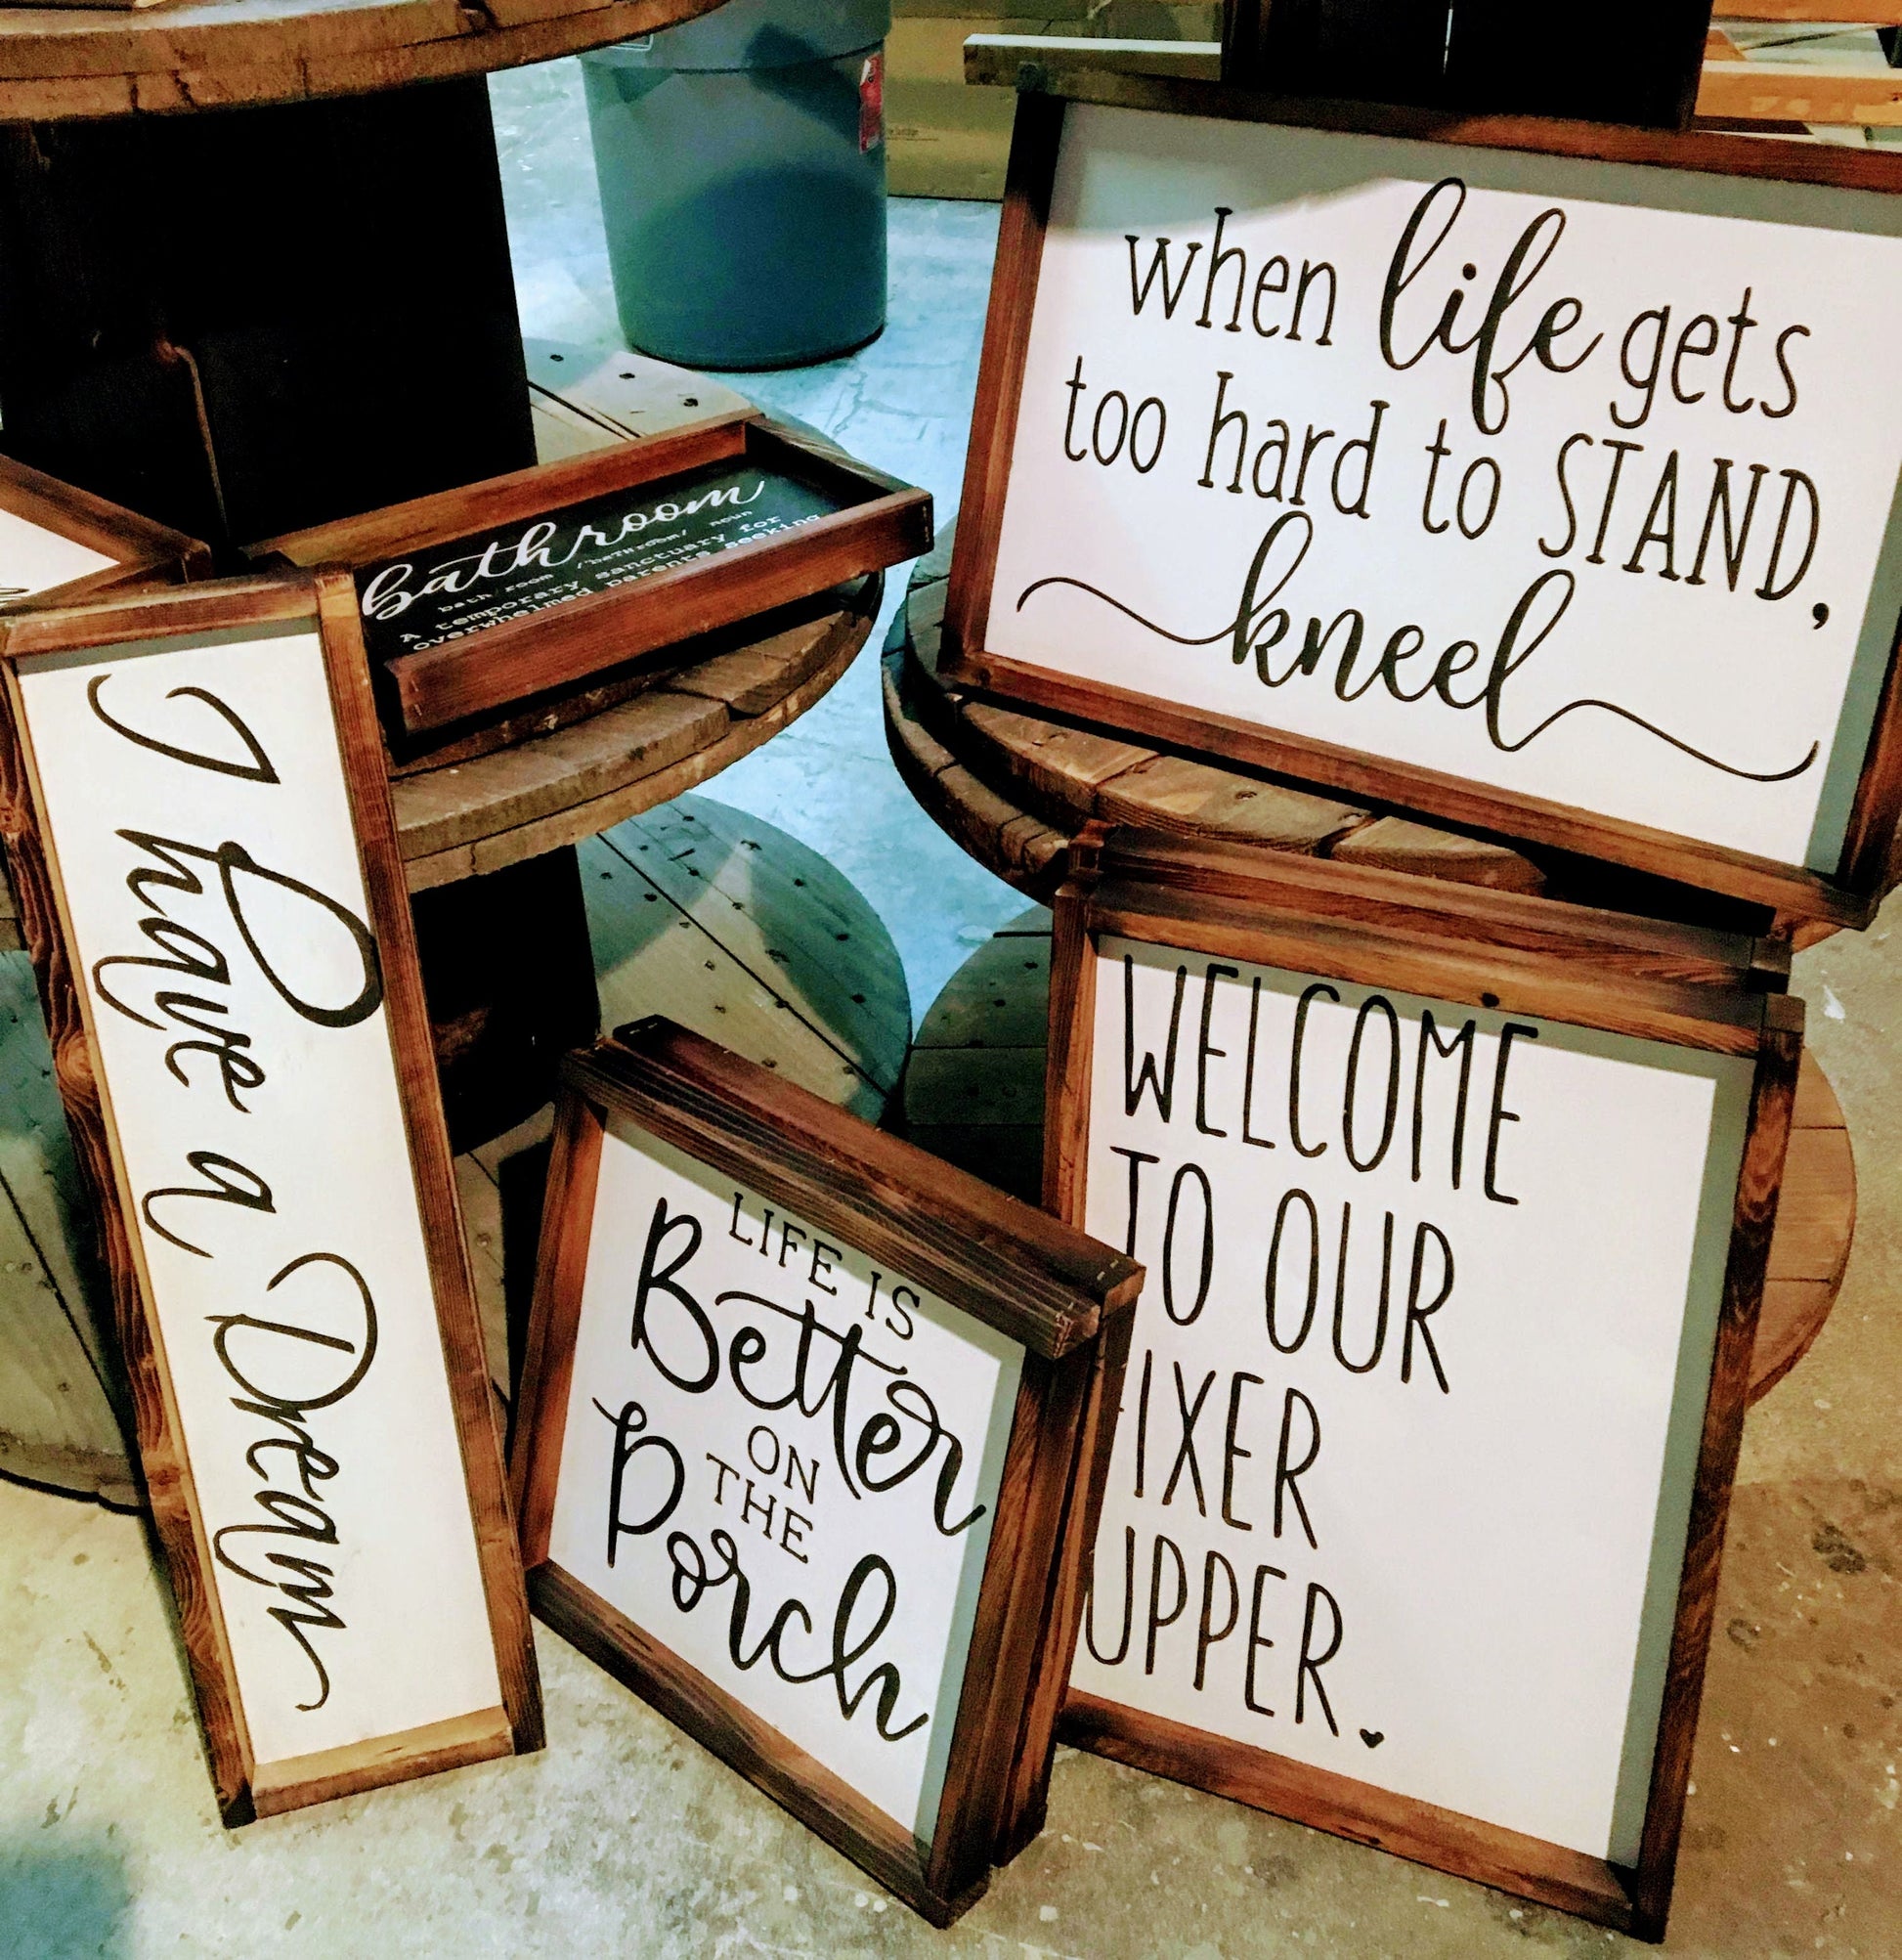 when life gets
too hard to STAND,
kneel
bathroom
bath room /baTHro͞om/ noun
A temporary sanctuary for
overwhelmed parents seeking
I have a Dream
LIFE IS
Better
ON
THE
Porch
WELCOME
TO OUR
FIXER
UPPER.